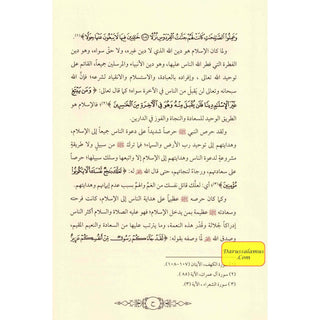 وَعَمِلُوا الصَّالِحَاتِ كَانَتْ لَهُمْ جَنَّاتُ الْفِرْدَوْسِ نُزُلًا خَالِدِينَ فِيهَا لَا يَبْغُونَ عَنْهَا حِوَلًا﴾(١).
ولما كان الإسلام هو دين الله الذي لا دين غيره، ولا حق سواه، وهو دين
الفطرة التي فطر الله الناس عليها، وهو دين الأنبياء والمرسلين جميعاً، القائم على
توحيد الله تعالى، وإفراده بالعبادة، والاستسلام والانقياد لشرعه؛ فإن الله
سبحانه وتعالى لن يقبل من الناس في الآخرة سواه كما قال تعالى: ﴿وَمَن يَبْتَغِ
غَيْرَ الْإِسْلَامِ دِينًا فَلَن يُقْبَلَ مِنْهُ وَهُوَ فِي الْآخِرَةِ مِنَ الْخَاسِرِينَ﴾(٢) فالإسلام هو
الطريق الوحيد للسعادة والنجاة والفوز في الدارين.
ولقد حرص النبي ﷺ حرصاً شديداً على دعوة الناس جميعاً إلى الإسلام،
وهدايتهم إلى توحيد رب الأرض والسماء؛ فما ترك ﷺ من سبيل ولا طريقة
مشروعة لدعوة الناس وهدايتهم إلى الإسلام إلا واتبعها وسلك سبيلها؛ حرصاً
على سعادتهم، ورجاءً لنجاتهم، حتى قال الله له: ﴿لَعَلَّكَ بَاخِعٌ نَّفْسَكَ أَلَّا يَكُونُوا
مُؤْمِنِينَ﴾(٣) أي: لعلك قاتل نفسك من الهم والغم بسبب عدم إيمانهم وهدايتهم.
وكما كان حرصه ﷺ عظيماً على هداية الناس إلى الإسلام، كانت فرحته
وسعادته ﷺ عظيمة بمن يدخل الإسلام؛ فهو عليه الصلاة والسلام أكثر الناس
إدراكاً لجلالة وقدر هذه النعمة، وما يترتب عليها من السعادة والنعيم المقيم،
وصدق الله ﷻ لما وصفه بقوله: ﴿لَقَدْ جَاءَكُمْ رَسُولٌ مِّنْ أَنفُسِكُمْ عَزِيزٌ
سورة الكهف، الآيتان (١٠٧-١٠٨).
(٢) سورة آل عمران، الآية (٨٥).
(٣) سورة الشعراء، الآية (٣).
Darussalamus
.Com
ح